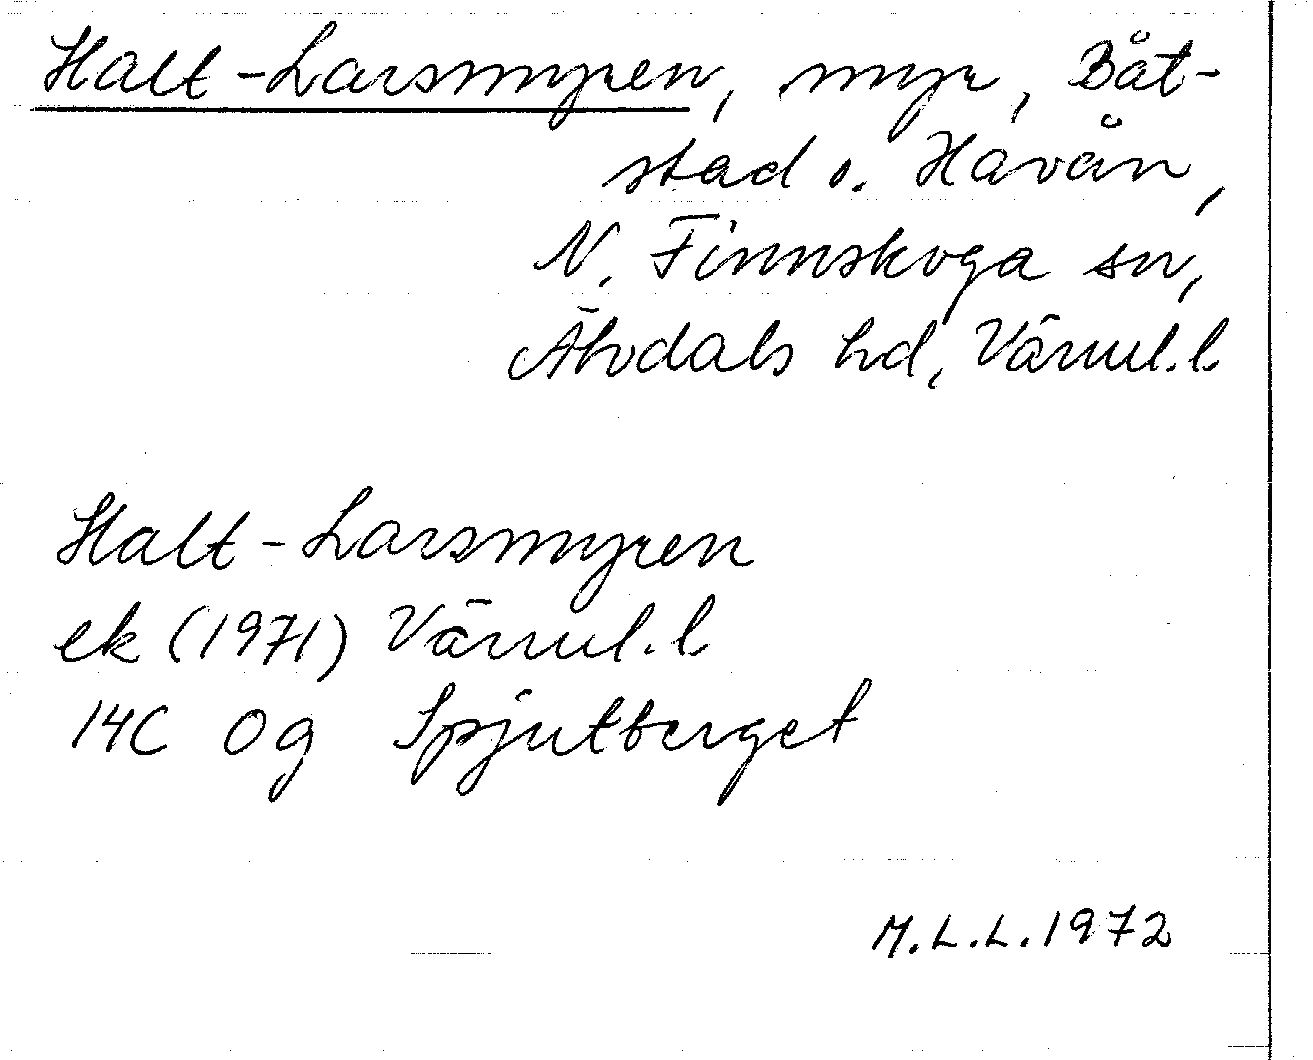 Halt-Larsmyren, myr, Båt-
stad o. Havån,
N. Finnskoga sn,
Älvdals hd, Värml.l.
Halt-Larsmyren
ek (1971) Värml.l
14C 0g Spjutberget
M.L.L. 1972